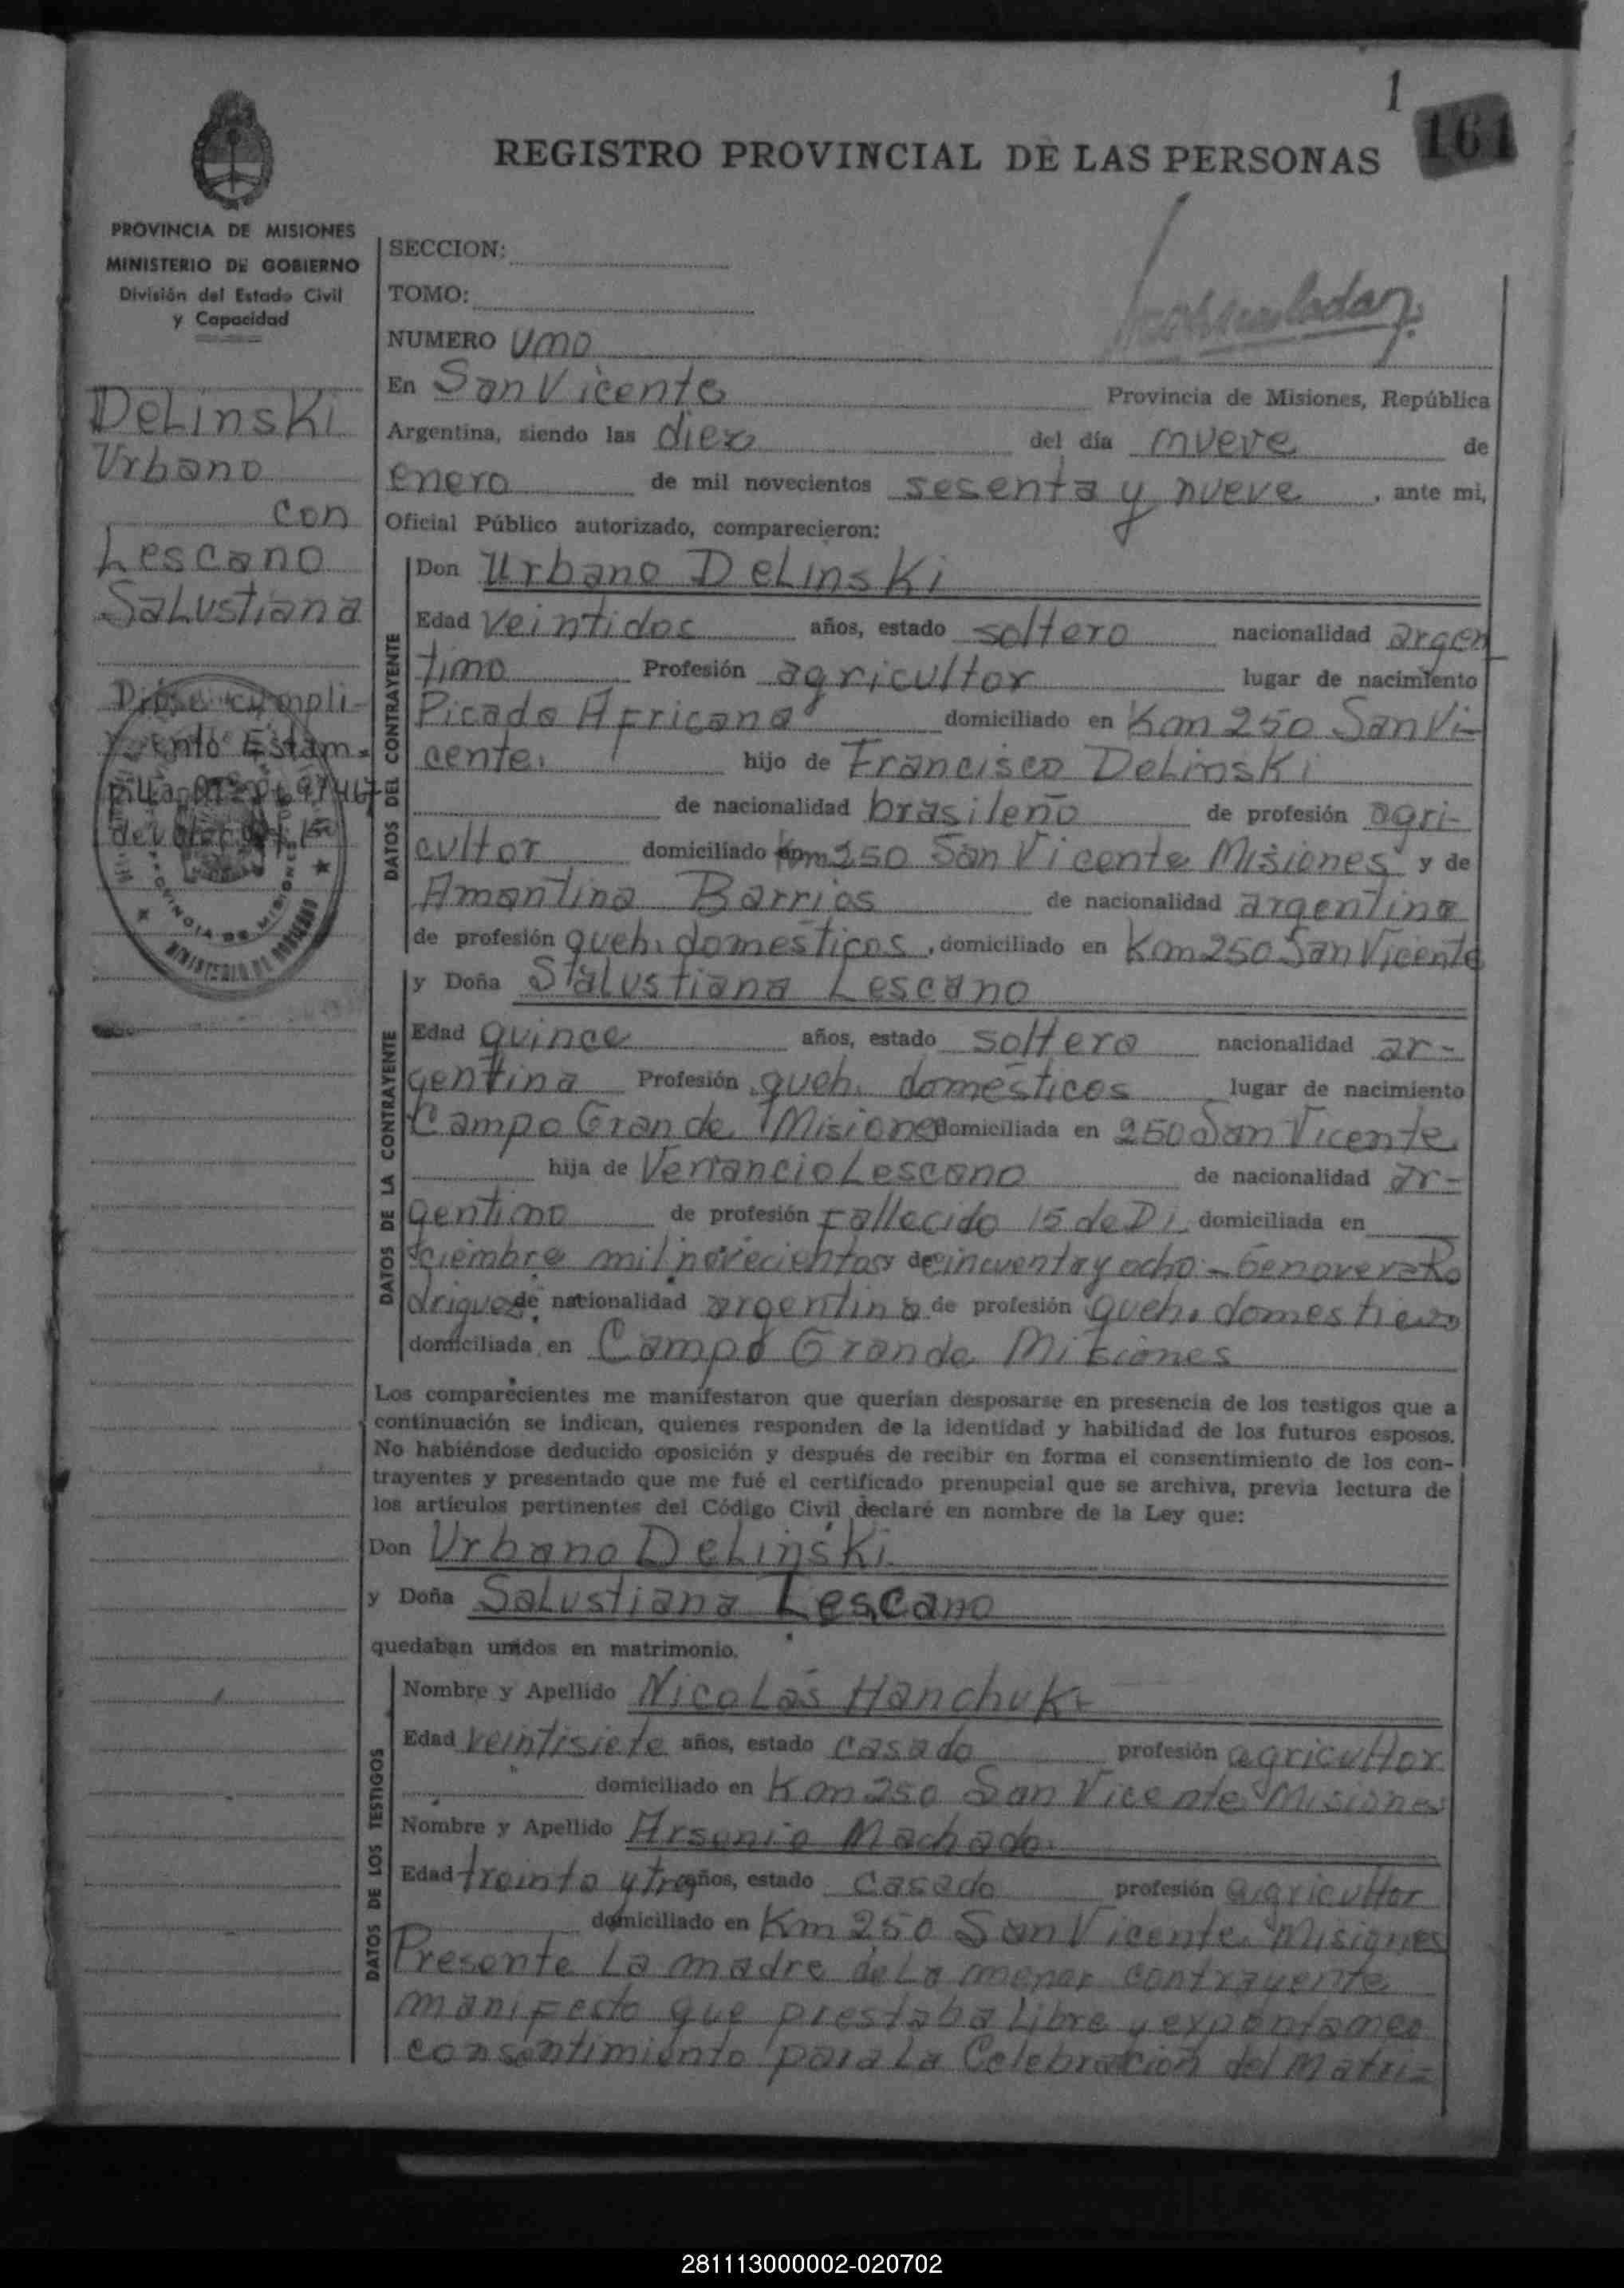 1
161
REGISTRO PROVINCIAL DE LAS PERSONAS
PROVINCIA DE MISIONES
MINISTERIO DE GOBIERNO
División del Estado Civil
y Capacidad
DeLinsKi
Urbano
con
Lescano
SaLustiana
Dióse cumpli-
miento Estam-
pilla
de valor
PROVINCIA DE MISIONES
MINISTERIO DE GOBIERNO
SECCION:
TOMO:
NUMERO Uno
En San Vicente Provincia de Misiones, República
Argentina, siendo las diez del día nueve de
enero de mil novecientos sesenta y nueve, ante mi,
Oficial Público autorizado, comparecieron:
DATOS DEL CONTRAYENTE
Don Urbano DeLinsKi
Edad veintidos años, estado soltero nacionalidad argen
tino Profesión agricultor lugar de nacimiento
Picada Africana domiciliado en Km 250 San Vi-
cente. hijo de Francisco DeLinsKi
de nacionalidad brasileño de profesión agri-
cultor domiciliado en Km 250 San Vicente Misiones y de
Amantina Barrios de nacionalidad argentina
de profesión queh. domesticos, domiciliado en Km 250 San Vicente
DATOS DE LA CONTRAYENTE
y Doña Stalustiana Lescano
Edad quince años, estado soltera nacionalidad ar-
gentina Profesión queh. domésticos lugar de nacimiento
Campo Grande Misiones domiciliada en 250 San Vicente
hija de Verrancio Lescano de nacionalidad ar-
gentino de profesión Fallecido 15 de Di domiciliada en
ciembre mil novecientos y de cincuenta y ocho - Genovera Ro
driguez de nacionalidad argentina de profesión queh. domesticos
domiciliada en Campo Grande Misiones
Los comparecientes me manifestaron que querían desposarse en presencia de los testigos que a
continuación se indican, quienes responden de la identidad y habilidad de los futuros esposos.
No habiéndose deducido oposición y después de recibir en forma el consentimiento de los con-
trayentes y presentado que me fué el certificado prenupcial que se archiva, previa lectura de
los artículos pertinentes del Código Civil declaré en nombre de la Ley que:
Don Urbano DeLinsKi
y Doña SaLustiana Lescano
quedaban unidos en matrimonio.
DATOS DE LOS TESTIGOS
Nombre y Apellido NicoLás Hanchuk
Edad veintisiete años, estado casado profesión agricultor
domiciliado en Km 250 San Vicente Misiones
Nombre y Apellido Arsenio Machado
Edad treinta y tres años, estado casado profesión agricultor
domiciliado en Km 250 San Vicente Misiones
Presente La madre de La menor contrayente
manifesto que prestaba Libre y expontaneo
consentimiento para La Celebración del Matri-
281113000002-020702